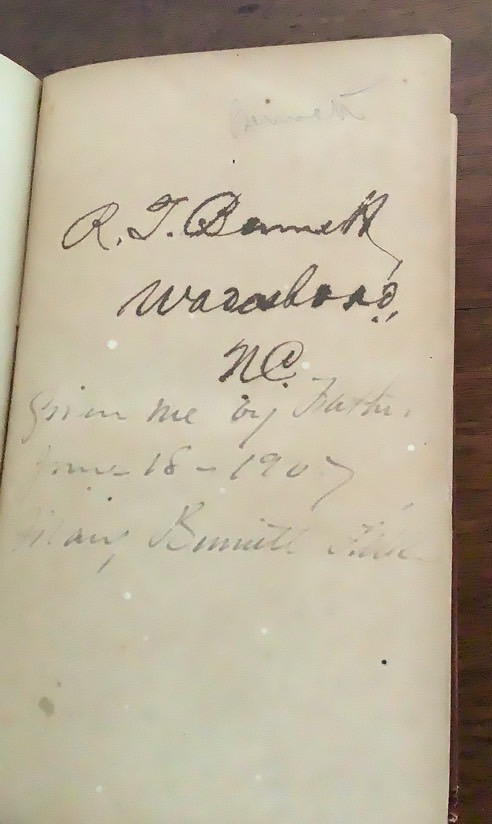 Bennett
R. T. Bennett,
Wadesboro,
N.C.
Given me by Father.
June 18 - 1907
Mary Bennett